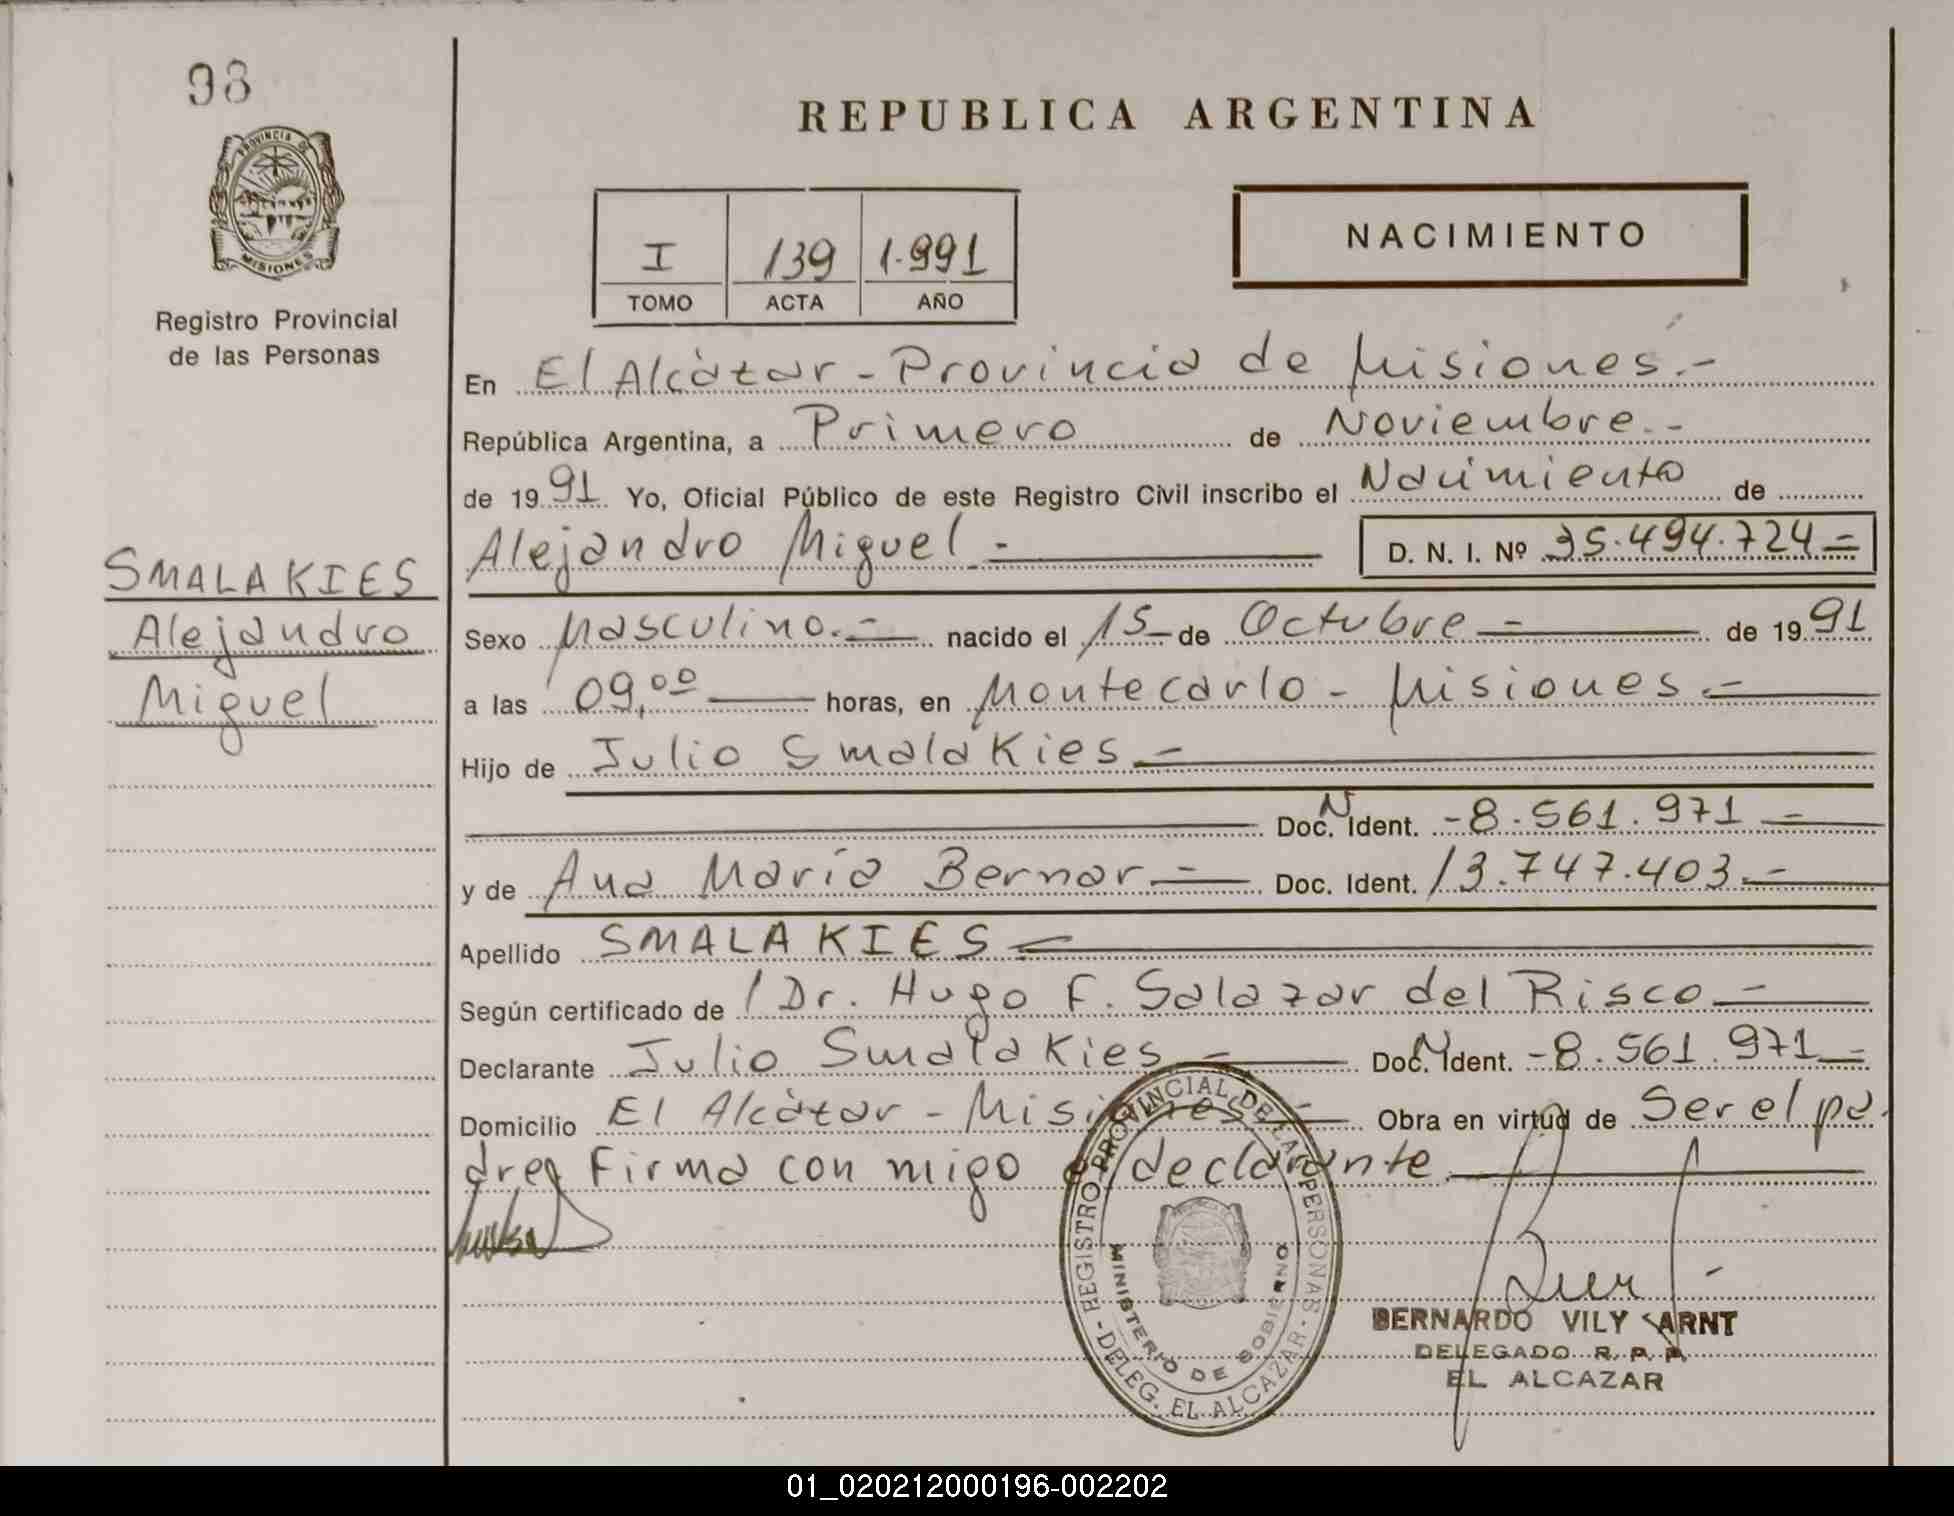 98
PROVINCIA DE
MISIONES
Registro Provincial
de las Personas
SMALAKIES
Alejandro
Miguel
REPUBLICA ARGENTINA
I 139 1.991
TOMO ACTA AÑO
NACIMIENTO
En El Alcázar - Provincia de Misiones.-
República Argentina, a Primero de Noviembre.-
de 1991 Yo, Oficial Público de este Registro Civil inscribo el Nacimiento de
Alejandro Miguel - D. N. I. Nº 35.494.724=
Sexo Masculino.- nacido el 15 de Octubre - de 1991
a las 09,00 horas, en Montecarlo - Misiones -
Hijo de Julio Smalakies -
Doc. N Ident. -8.561.971 -
y de Ana María Bernar - Doc. Ident. 13.747.403.-
Apellido SMALAKIES -
Según certificado de Dr. Hugo F. Salazar del Risco -
Declarante Julio Smalakies - Doc. N Ident. -8.561.971-
Domicilio El Alcázar - Misiones - Obra en virtud de Ser el pa
dre, Firma con migo el declarante.
REGISTRO PROVINCIAL DE LAS PERSONAS - DELEG. EL ALCAZAR -
MINISTERIO DE GOBIERNO
BERNARDO VILY ARNT
DELEGADO R. P. P.
EL ALCAZAR
01_020212000196-002202